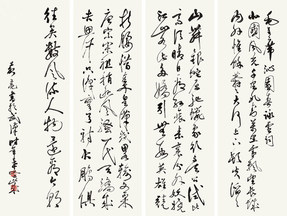 北国风光千里冰封万里雪飘望长城
内外惟余莽莽大河上下顿失滔滔
山舞银蛇原驰蜡象欲与天公试比
高须晴日看红装素裹分外妖娆
江山如此多娇引无数英雄竞
折腰惜秦皇汉武略输文采
唐宗宋祖稍逊风骚一代天骄成
吉思汗只识弯弓射大雕俱
往矣数风流人物还看今朝